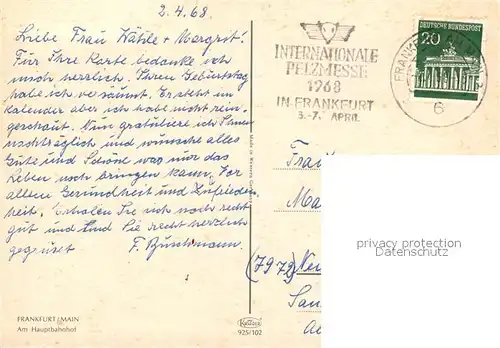 2.4.68.
Liebe Frau Kätile + Margret!
Für Ihre Karte bedanke ich
mich herzlich. Ihren Geburtstag
habe ich versäumt. Er steht im
Kalender aber ich habe nicht rein-
geschaut. Nun gratuliere ich Ihnen
nachträglich und wünsche alles
Gute und Schöne was nur das
Leben noch bringen kann. Vor
allem Gesundheit und Zufrieden
heit. Erholen Sie sich noch recht
gut und sind Sie recht herzlich
gegrüsst F. Buschmann
FRANKFURT/MAIN
Am Hauptbahnhof
Krüger
925/102
INTERNATIONALE
PELZMESSE
1968
IN FRANKFURT
3.-7. APRIL
DEUTSCHE BUNDESPOST
20
FRANK
6
Frau
Ma
(7972)
privacy protection
Datenschutz